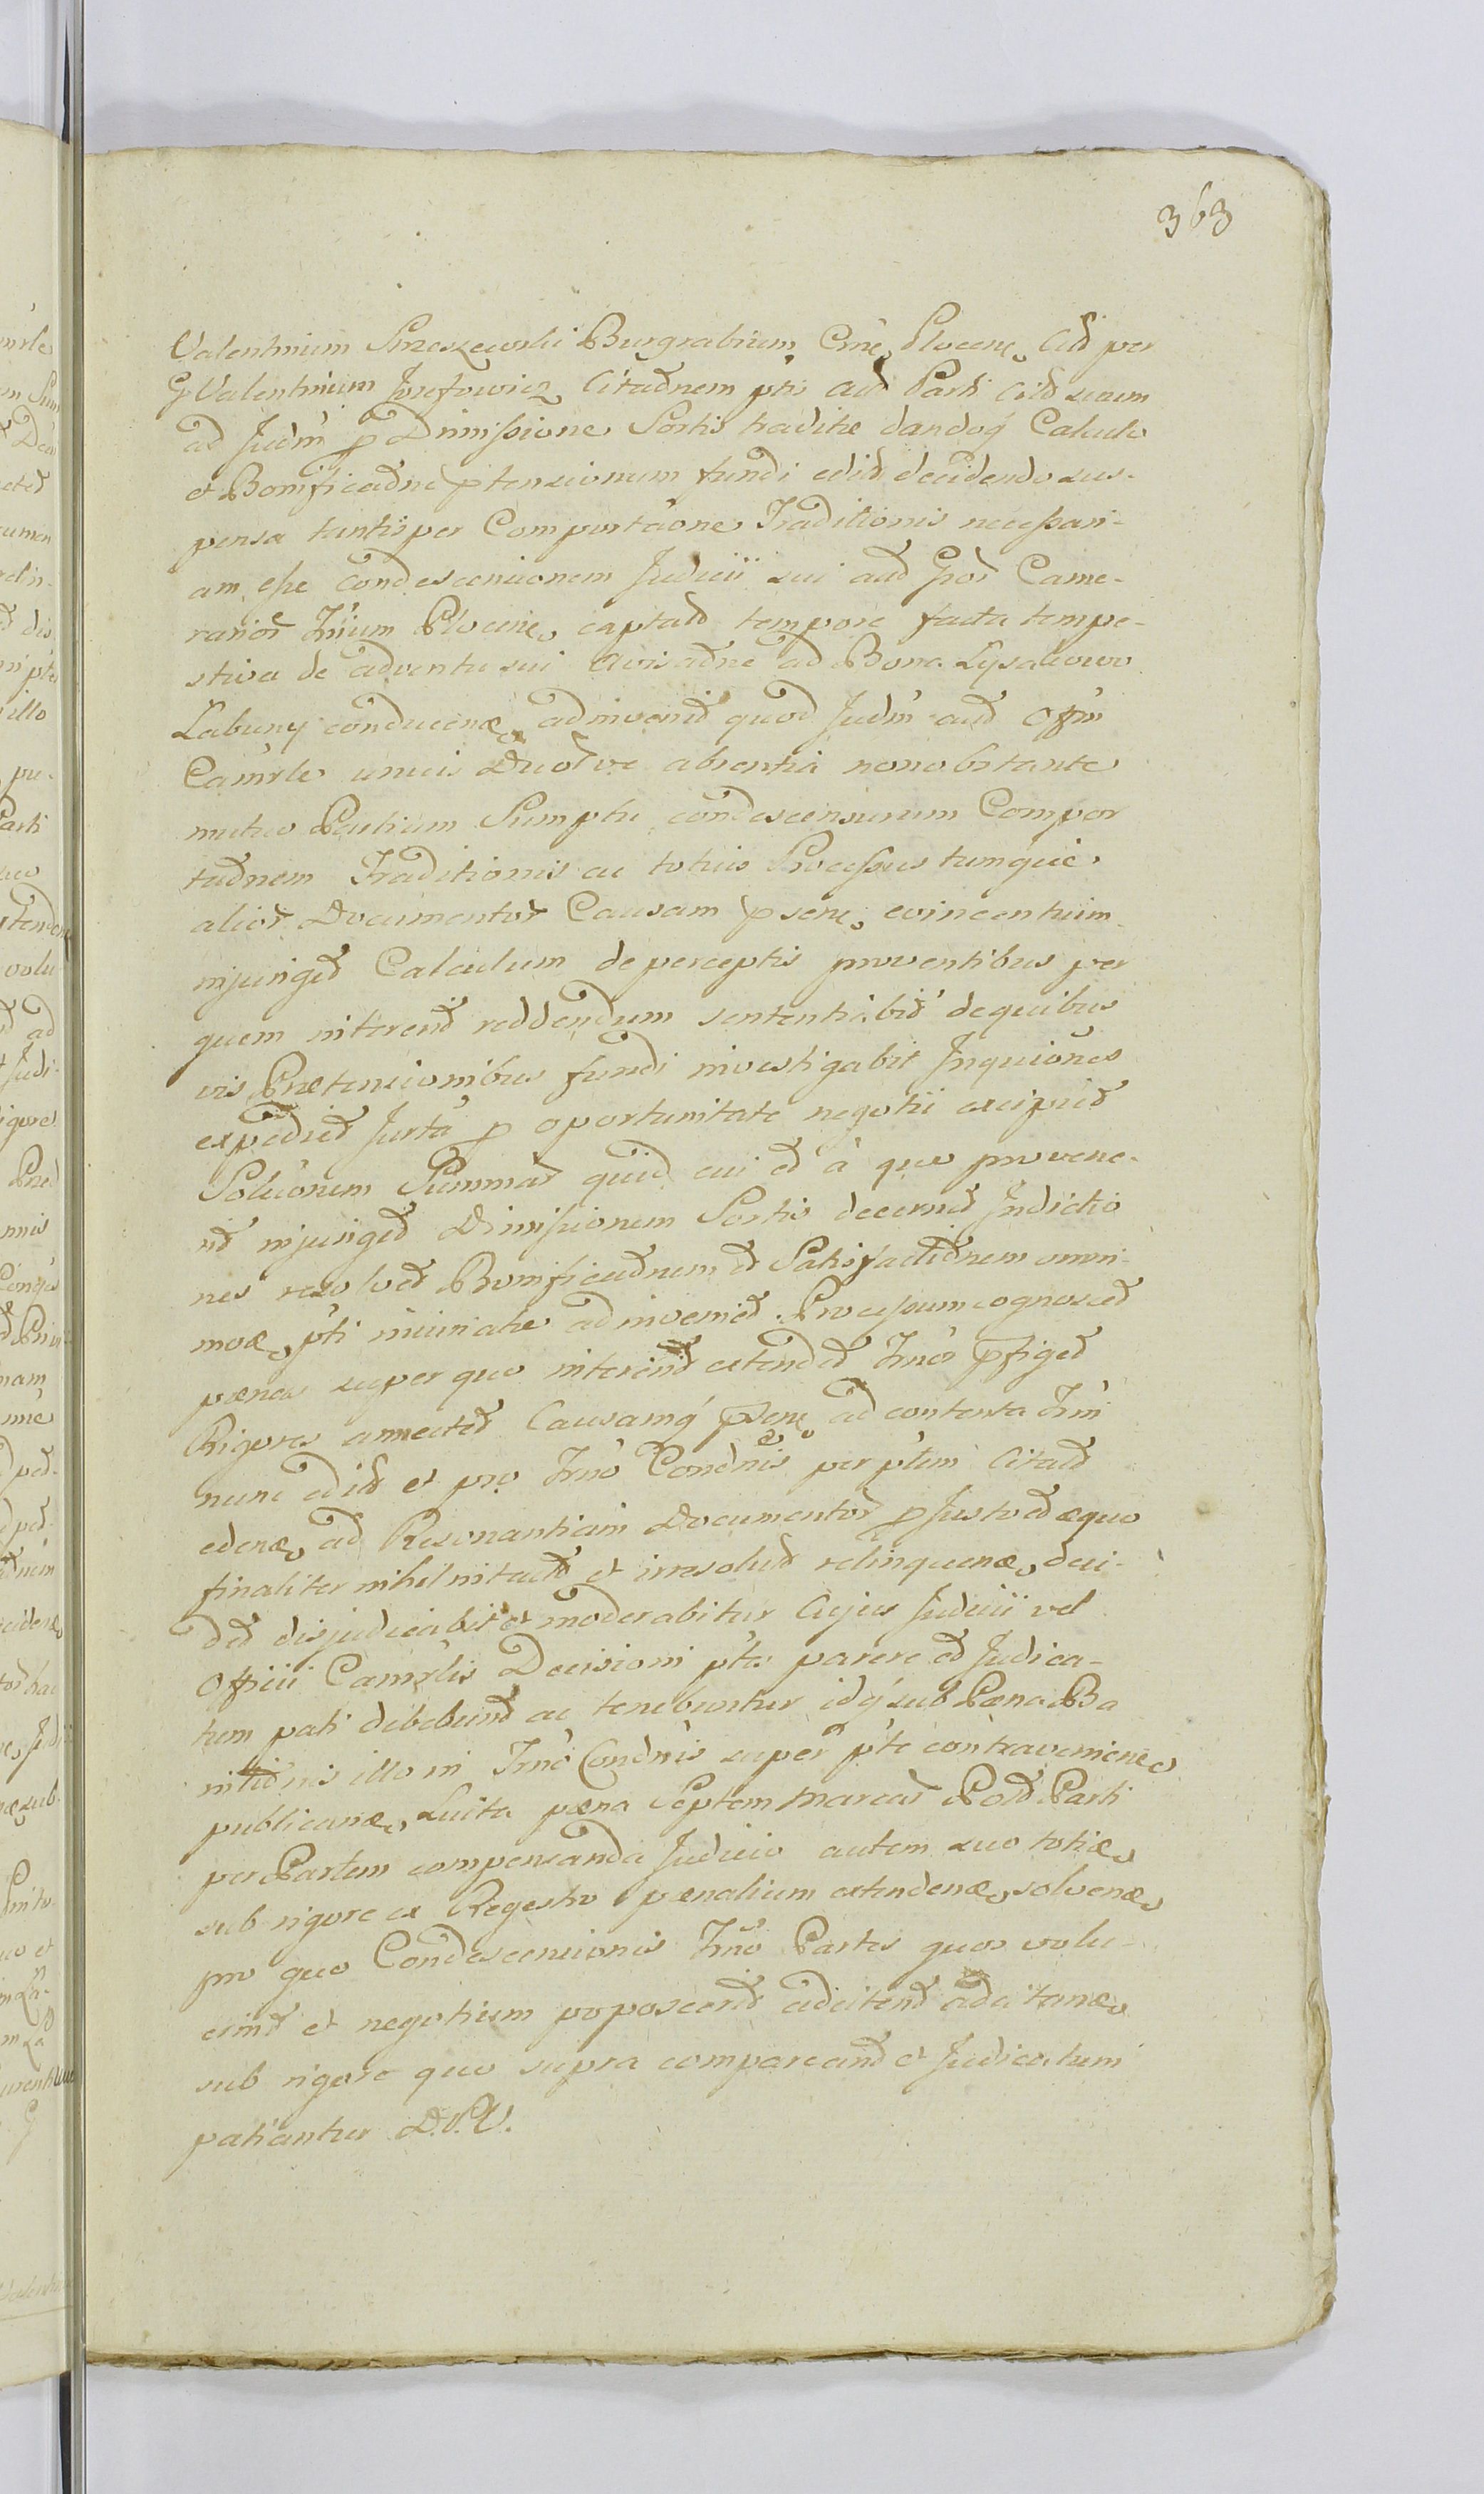 363
Valentinum Smoszewski Burgrabium Cnė Plocenę Citđ per
G Valentinum Jozefowicz Citađnem ptis Actđ Parti Citđ suum
ad Judm̃ p Dimissione Sortis traditæ dandoq́ Calculo
et Bonificađne ptensionum fundi ediđ decidendo sus-
pensa tantisper Comportaõne Traditionis necessari-
am esse Condescensionem Judicii sui auđ Gnor̃ Came-
rarior̃ Trium Plocenę captađ tempore facta tempe-
stiva de adventu sui Avisađne ad Bona Lysakowo
Łabuny conducenæ adinveniđ quod Judm̃ auđ Offm̃
Camrle unius Duor̃ve absentia nonobstante
mutuo Partium Sumptu condescensurum Compor
tađnem Traditionis ac totius Processus tumque
alior̃ Documentor̃ Causam psenę evincentium
injungeđ Calculum de perceptis proventibus per
quem intereriđ reddendum sententiabiđ de quibus
vis Prætensionibus fundi investigabit Inquiõnes
expedieđ Jurta p oportunitate negotii excipieđ
Soluõnem Summar̃ quid cui eđ à quo provene-
riđ injungeđ Dimissionem Sortis decerneđ Indictio
nes resolveđ Bonificađnem eđ Satisfactiđnem omni-
modæ pti iniuriatæ adinvenieđ Processum cognosceđ
pænas super quo intereriđ extendeđ Trnõs pfigeđ
Rigores annecteđ Causamq́ psenę ad contenta Trm̃
nunc ediđ et pro Trnõ Condn̄is per ptem Citađ
edenæ ad Resonantiam Documentor̃ p Justo eđ æquo
finaliter nihil intactđ et irresoluđ relinquenæ deci-
deđ disjudicabit et moderabitur Cujus Judicii vel
Officii Camrlis Decisioni ptes parere eđ Judica-
tum pati debebunđ ac tenebuntur idq́ sub Pæna Ba
nitiđnis illo in Trnõ Condn̄is super pte contravenienę
publicanæ Luita pæna Septem Marcar̃ Polđ Parti
per Partem compensanda Judicio autem suo totiæ
sub rigore ex Regestro pænalium extendenæ solvenæ
pro quo Condescensionis Trnõ Partes quos volu-
erinđ et negotium poposceriđ adcitenđ adcitanæ
sub rigore quo supra compareanđ et Judicatum
patiantur D.P.V.